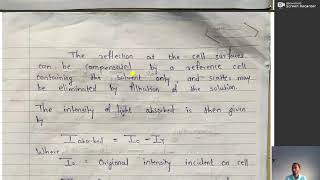 The reflection at the cell surfaces
can be compensated by a reference cell
containing the solvent only, and scatter may
be eliminated by filtration of the solution.
The intensity of light absorbed is then given
by
I absorbed = Io - IT
Where
Io = Origional intensity incident on cell